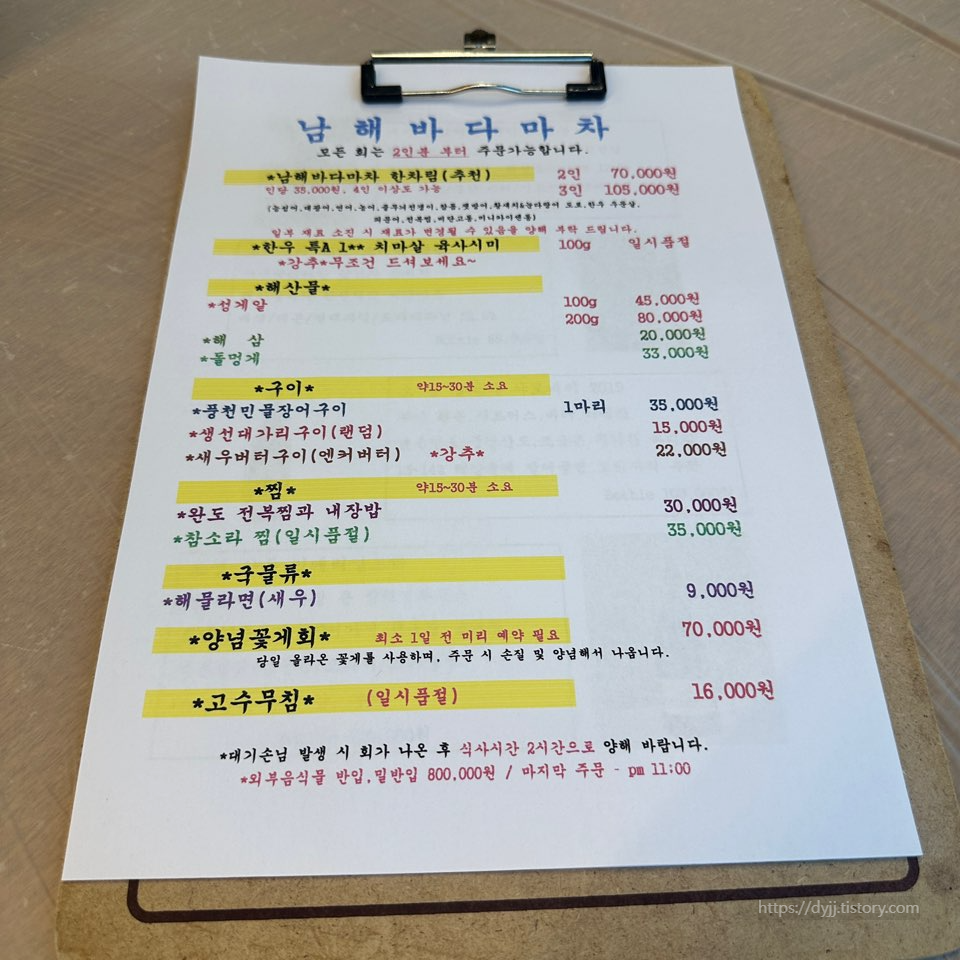 남해바다마차
모든 회는 2인분 부터 주문가능합니다.
*남해바다마차 한차림(추천) 2인 70,000원
인당 35,000원, 4인 이상도 가능 3인 105,000원
일부 재료 소진 시 재료가 변경될 수 있음을 양해 부탁 드립니다.
*한우 특A 1** 치마살 육사시미 100g 일시품절
*강추*무조건 드셔보세요~
*해산물*
*성게알 100g 45,000원
200g 80,000원
*해 삼 20,000원
*돌멍게 33,000원
*구이* 약15~30분 소요
*풍천민물장어구이 1마리 35,000원
*생선대가리구이(랜덤) 15,000원
*새우버터구이(엔커버터) *강추* 22,000원
*찜* 약15~30분 소요
*완도 전복찜과 내장밥 30,000원
*참소라 찜(일시품절) 35,000원
*국물류*
*해물라면(새우) 9,000원
*양념꽃게회* 최소 1일 전 미리 예약 필요 70,000원
당일 올라온 꽃게를 사용하며, 주문 시 손질 및 양념해서 나옵니다.
*고수무침* (일시품절) 16,000원
*대기손님 발생 시 회가 나온 후 식사시간 2시간으로 양해 바랍니다.
*외부음식물 반입,밀반입 800,000원 / 마지막 주문 - pm 11:00
https://dyjj.tistory.com